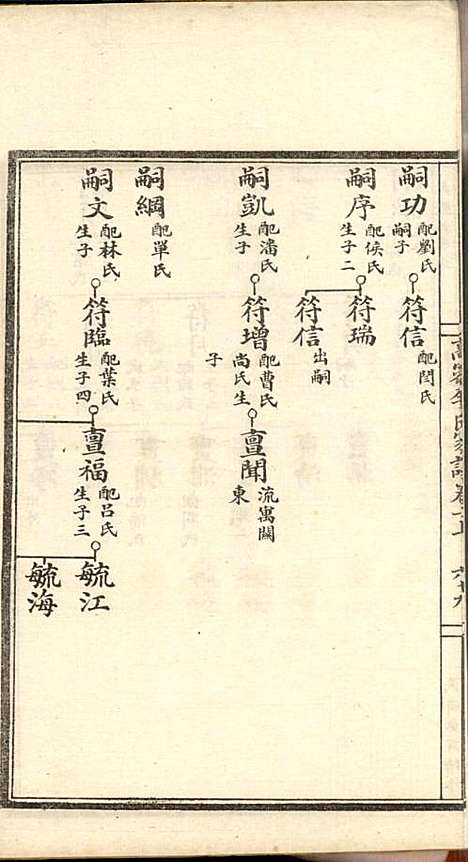 嗣功
配劉氏
嗣子
符信
配閆氏
嗣序
配侯氏
生子二
符瑞
符信
出嗣
嗣凱
配潘氏
生子
符增
配曹氏
尚氏生
子
亶聞
流寓關
東
嗣綱
配單氏
嗣文
配林氏
生子
符臨
配葉氏
生子四
亶福
配呂氏
生子三
毓江
毓海